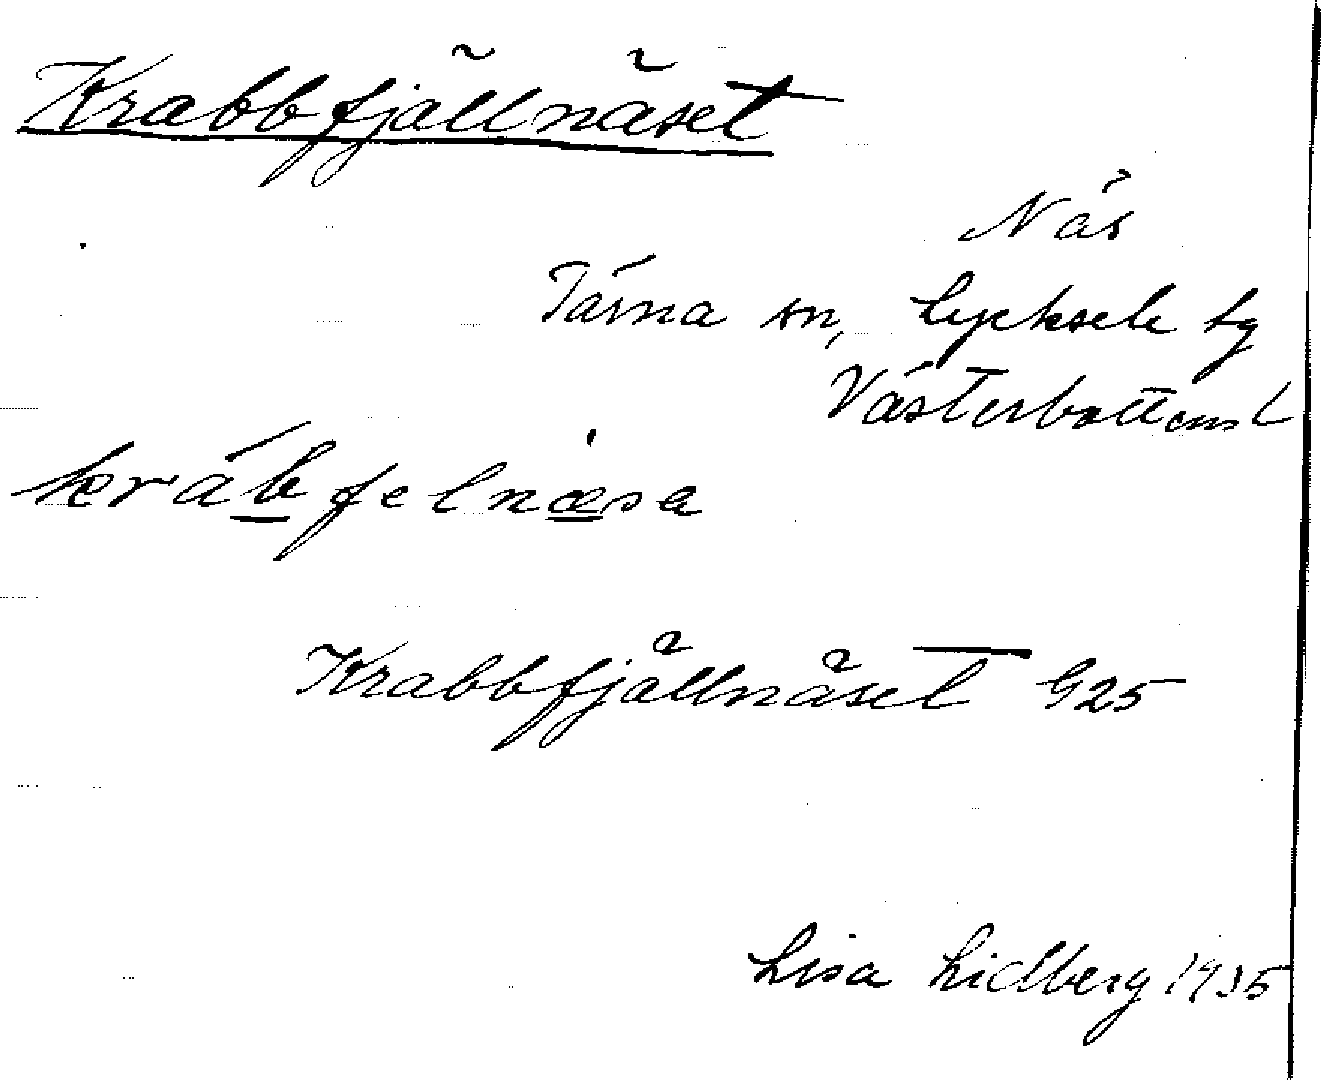 Krabbfjällnäset
Näs
Tärna sn, Lycksele tg
Västerbottens l
kráb̲felnæ̲̀sa
Krabbfjällnäset G25
Lisa Lidberg 1935